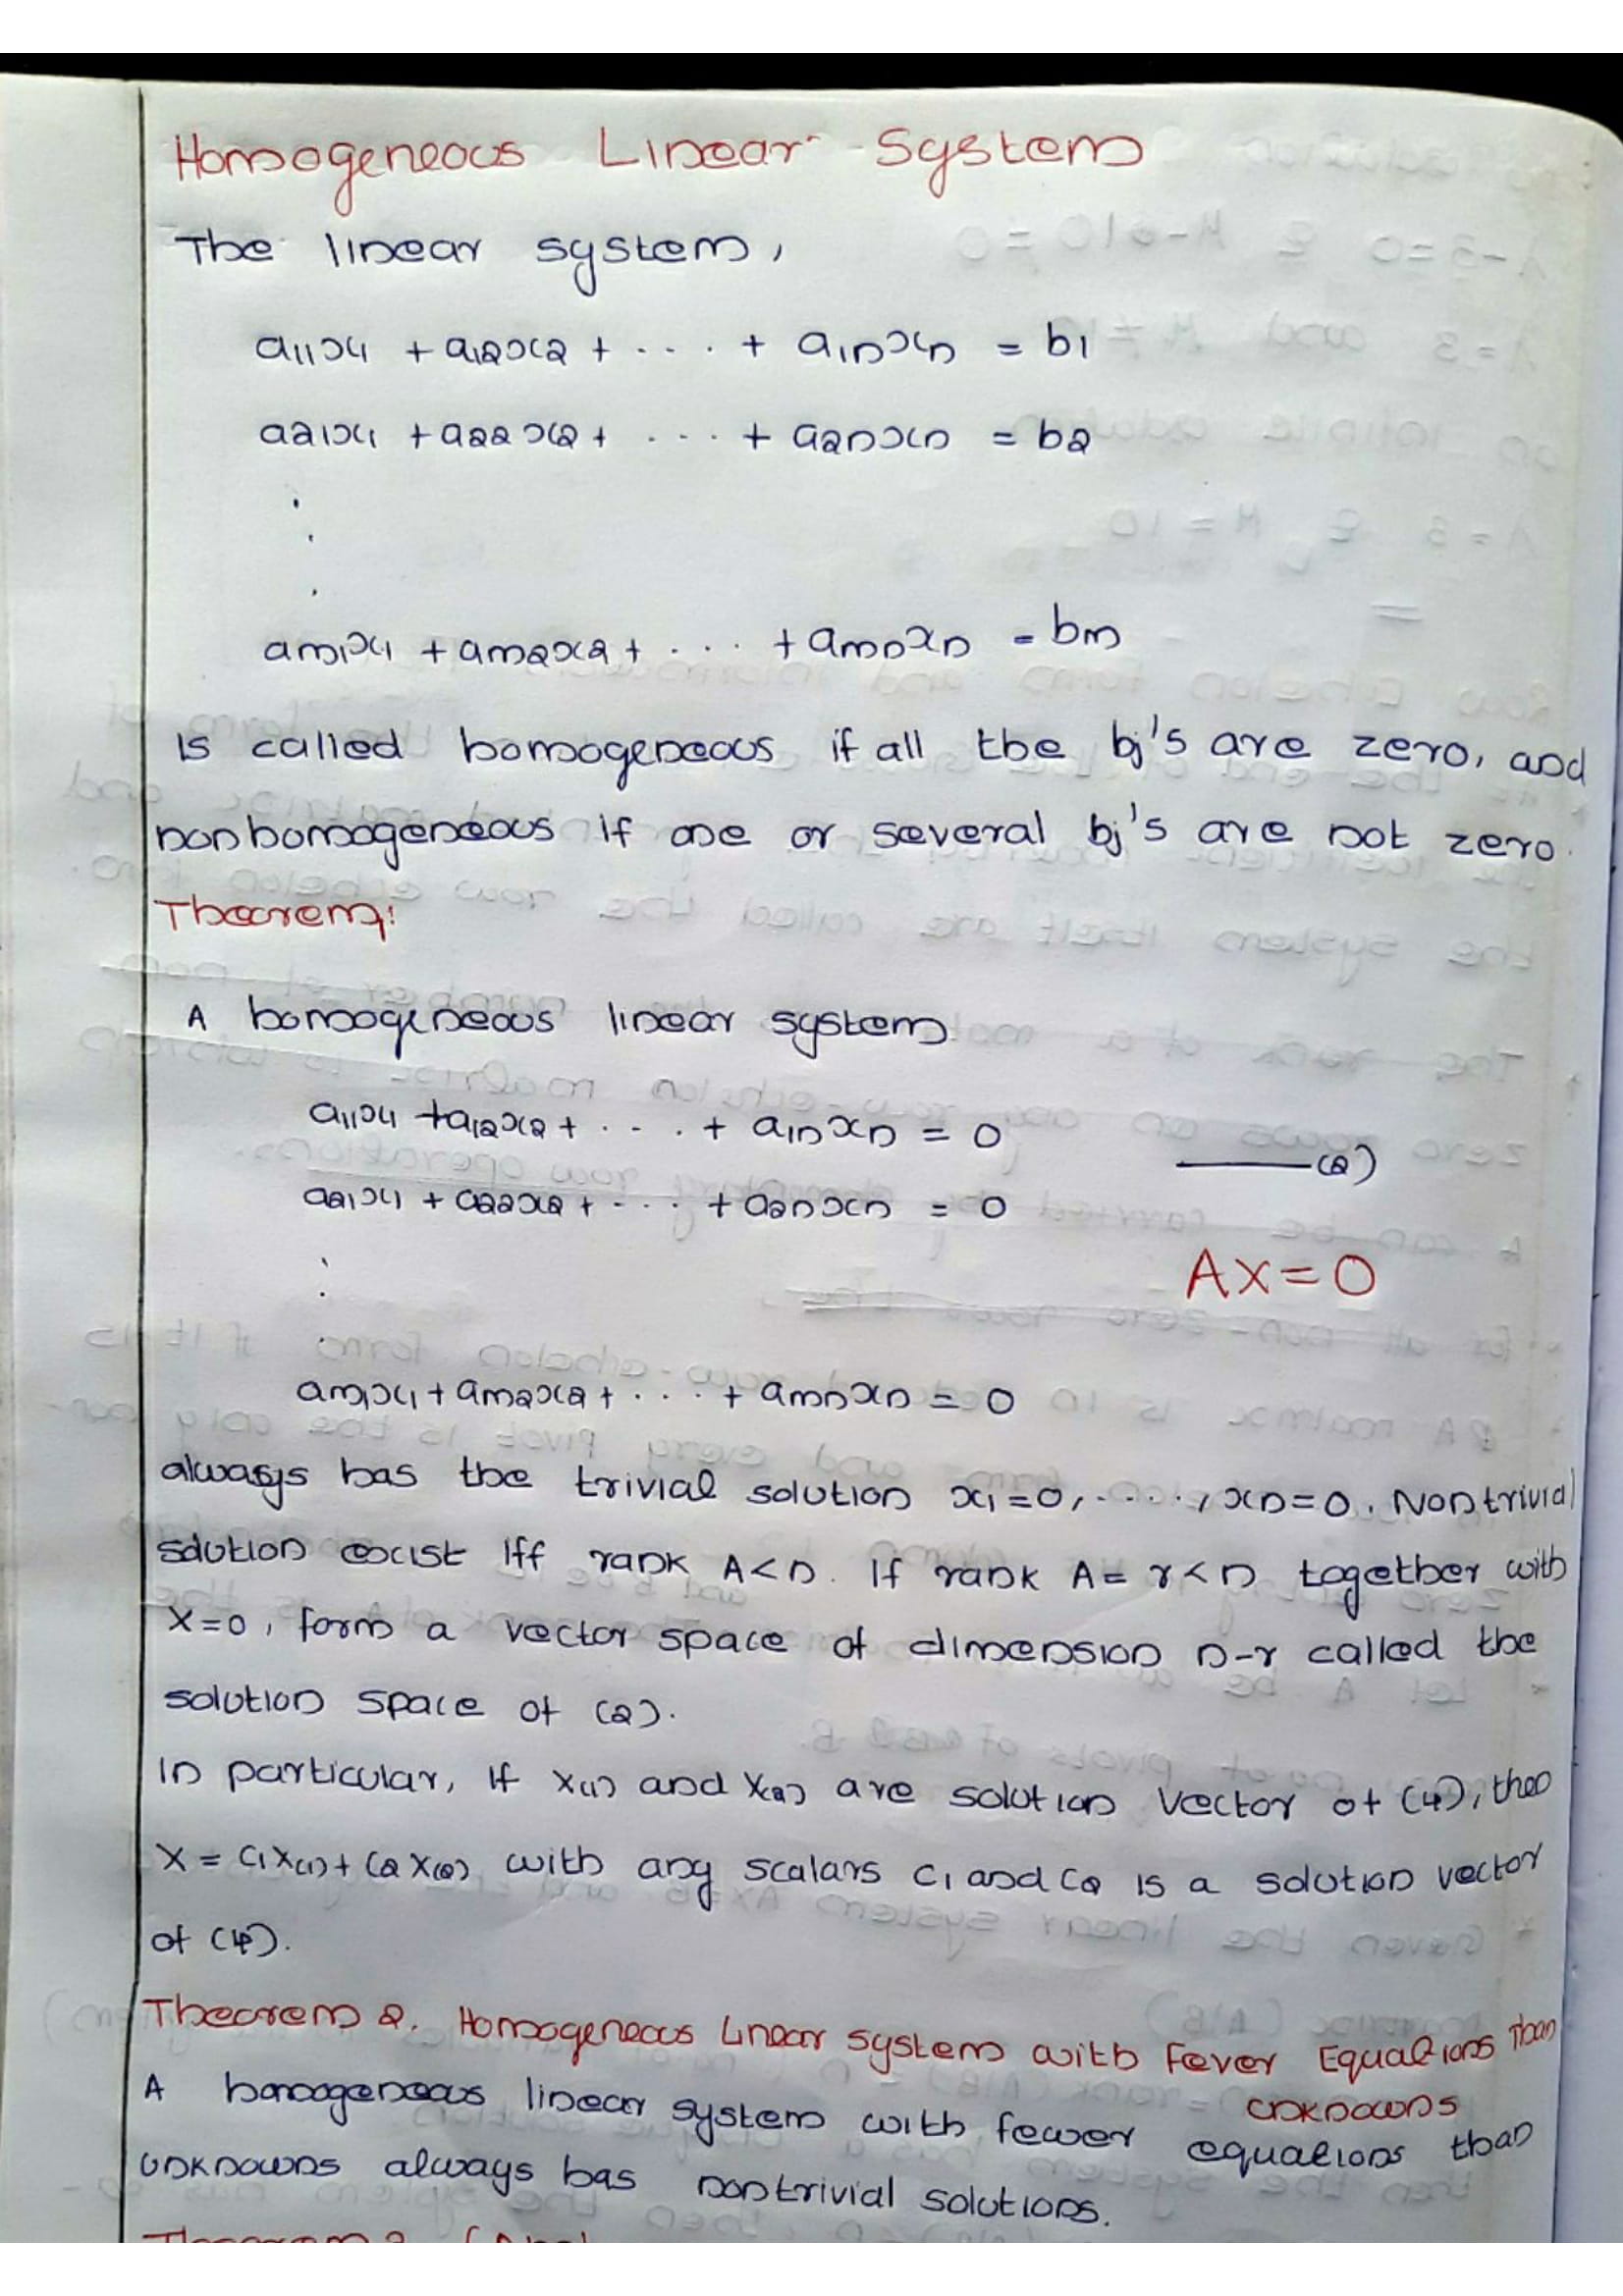 Homogeneous Linear System
The linear system,
a11x1 + a12x2 + . . . + a1nxn = b1
a21x1 + a22x2 + . . . + a2nxn = b2
.
.
.
am1x1 + am2x2 + . . . + amnxn = bm
Is called homogeneous if all the bj's are zero, and
nonhomogeneous if one or several bj's are not zero.
Theorem:
A homogeneous linear system
a11x1 + a12x2 + . . . + a1nxn = 0
——— (2)
a21x1 + a22x2 + . . . + a2nxn = 0
.
.
AX=0
.
am1x1 + am2x2 + . . . + amnxn = 0
always has the trivial solution x1=0, . . . . , xn=0. Nontrivial
solution exist Iff rank A<n. If rank A= r<n together with
X=0, form a vector space of dimension n-r called the
solution space of (2).
In particular, if x(1) and x(2) are solution vector of (4), then
X = c1x(1) + c2x(2) with any scalars c1 and c2 is a solution vector
of (4).
Theorem 2. Homogeneous Linear System with Fever Equations Than
unknowns
A homogeneous linear system with fewer equations than
unknowns always has nontrivial solutions.